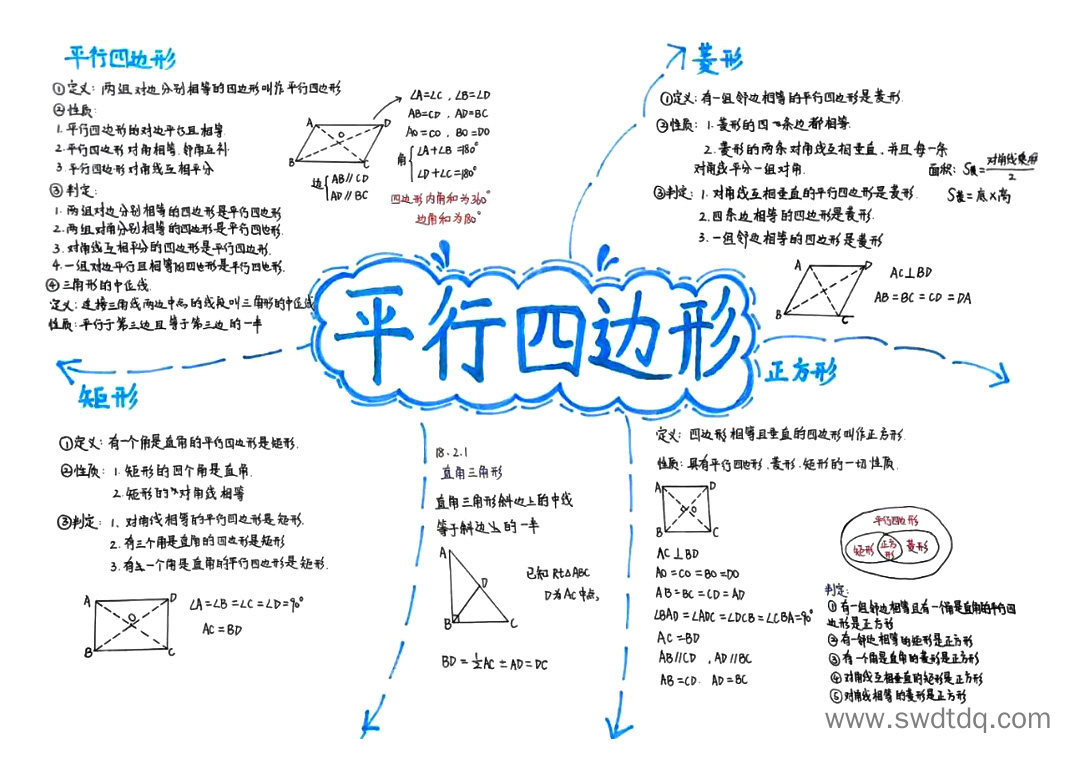 平行四边形
①定义：两组对边分别相等的四边形叫作平行四边形
②性质：
1.平行四边形的对边平行且相等.
2.平行四边形对角相等.邻角互补.
3.平行四边形对角线互相平分
③判定：
1.两组对边分别相等的四边形是平行四边形
2.两组对角分别相等的四边形是平行四边形.
3.对角线互相平分的四边形是平行四边形.
4.一组对边平行且相等的四边形是平行四边形.
④三角形的中位线
定义：连接三角线两边中点的线段叫三角形的中位线
性质：平行于第三边且等于第三边的一半
A
D
O
B
C
∠A=∠C，∠B=∠D
AB=CD，AD=BC
AO=CO，BO=DO
角
∠A+∠B=180°
∠D+∠C=180°
边
AB∥CD
AD∥BC
四边形内角和为360°
边角和为180°
菱形
①定义：有一组邻边相等的平行四边形是菱形.
②性质：1.菱形的四条边都相等.
2.菱形的两条对角线互相垂直.并且每一条
对角线平分一组对角.
面积：S菱=对角线乘积/2
S菱=底×高
③判定：1.对角线互相垂直的平行四边形是菱形.
2.四条边相等的四边形是菱形.
3.一组邻边相等的四边形是菱形
A
D
B
C
AC⊥BD
AB=BC=CD=DA
平行四边形
矩形
①定义：有一个角是直角的平行四边形是矩形.
②性质：1.矩形的四个角是直角.
2.矩形的对角线相等
③判定：1、对角线相等的平行四边形是矩形.
2.有三个角是直角的四边形是矩形
3.有一个角是直角的平行四边形是矩形.
A
D
O
B
C
∠A=∠B=∠C=∠D=90°
AC=BD
18.2.1
直角三角形
直角三角形斜边上的中线
等于斜边上的一半
A
D
B
C
已知Rt△ABC
D为AC中点，
BD=½AC=AD=DC
正方形
定义：四边形相等且垂直的四边形叫作正方形.
性质：具有平行四边形.菱形.矩形的一切性质.
A
D
O
B
C
AC⊥BD
AO=CO=BO=DO
AB=BC=CD=AD
∠BAD=∠ADC=∠DCB=∠CBA=90°
AC=BD
AB∥CD，AD∥BC
AB=CD AD=BC
平行四边形
矩形
正方形
菱形
判定：
①有一组邻边相等且有一个角是直角的平行四
边形是正方形
②有一邻边相等的矩形是正方形
③有一个角是直角的菱形是正方形
④对角线互相垂直的矩形是正方形
⑤对角线相等的菱形是正方形
www.swdtdq.com